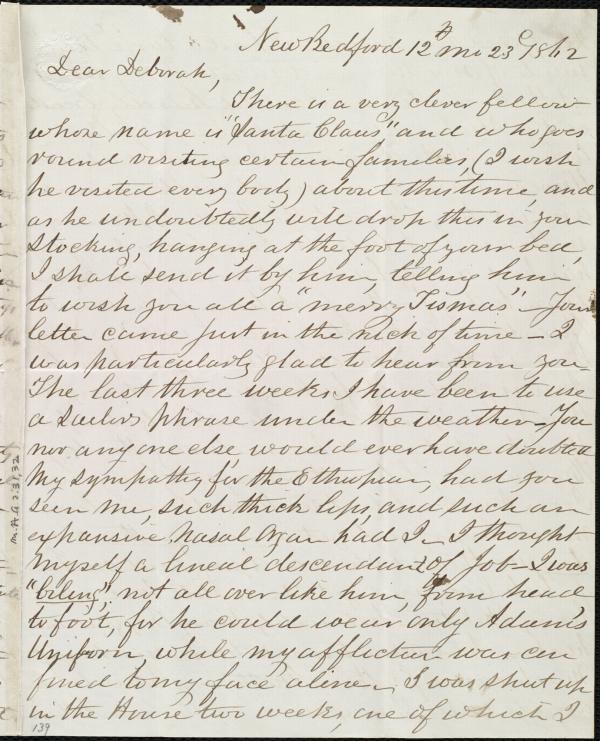 New Bedford 12th mo 23d 1862
Dear Deborah,
There is a very clever fellow
whose name is "Santa Claus," and who goes
round visiting certain families, (I wish
he visited every body) about this time, and
as he undoubtedly will drop this in your
Stocking, hanging at the foot of your bed,
I shall send it by him, telling him
to wish you all a "merry Tismas" - Your
letter came just in the nick of time - I
was particularly glad to hear from you -
The last three weeks I have been to use
a Sailor's phrase under the weather - You
nor any one else, would ever have doubted
my sympathy for the Ethiopian, had you
seen me, such thick lips, and such an
expansive nasal organ had I - I thought
myself a lineal descendant of Job - I was
"biling", not all over like him, from head
to foot, for he could wear only Adam's
Uniform, while my affliction was con
fined to my face alone - I was shut up
in the House two weeks, one of which I
139
M.A.G. 3.31,32